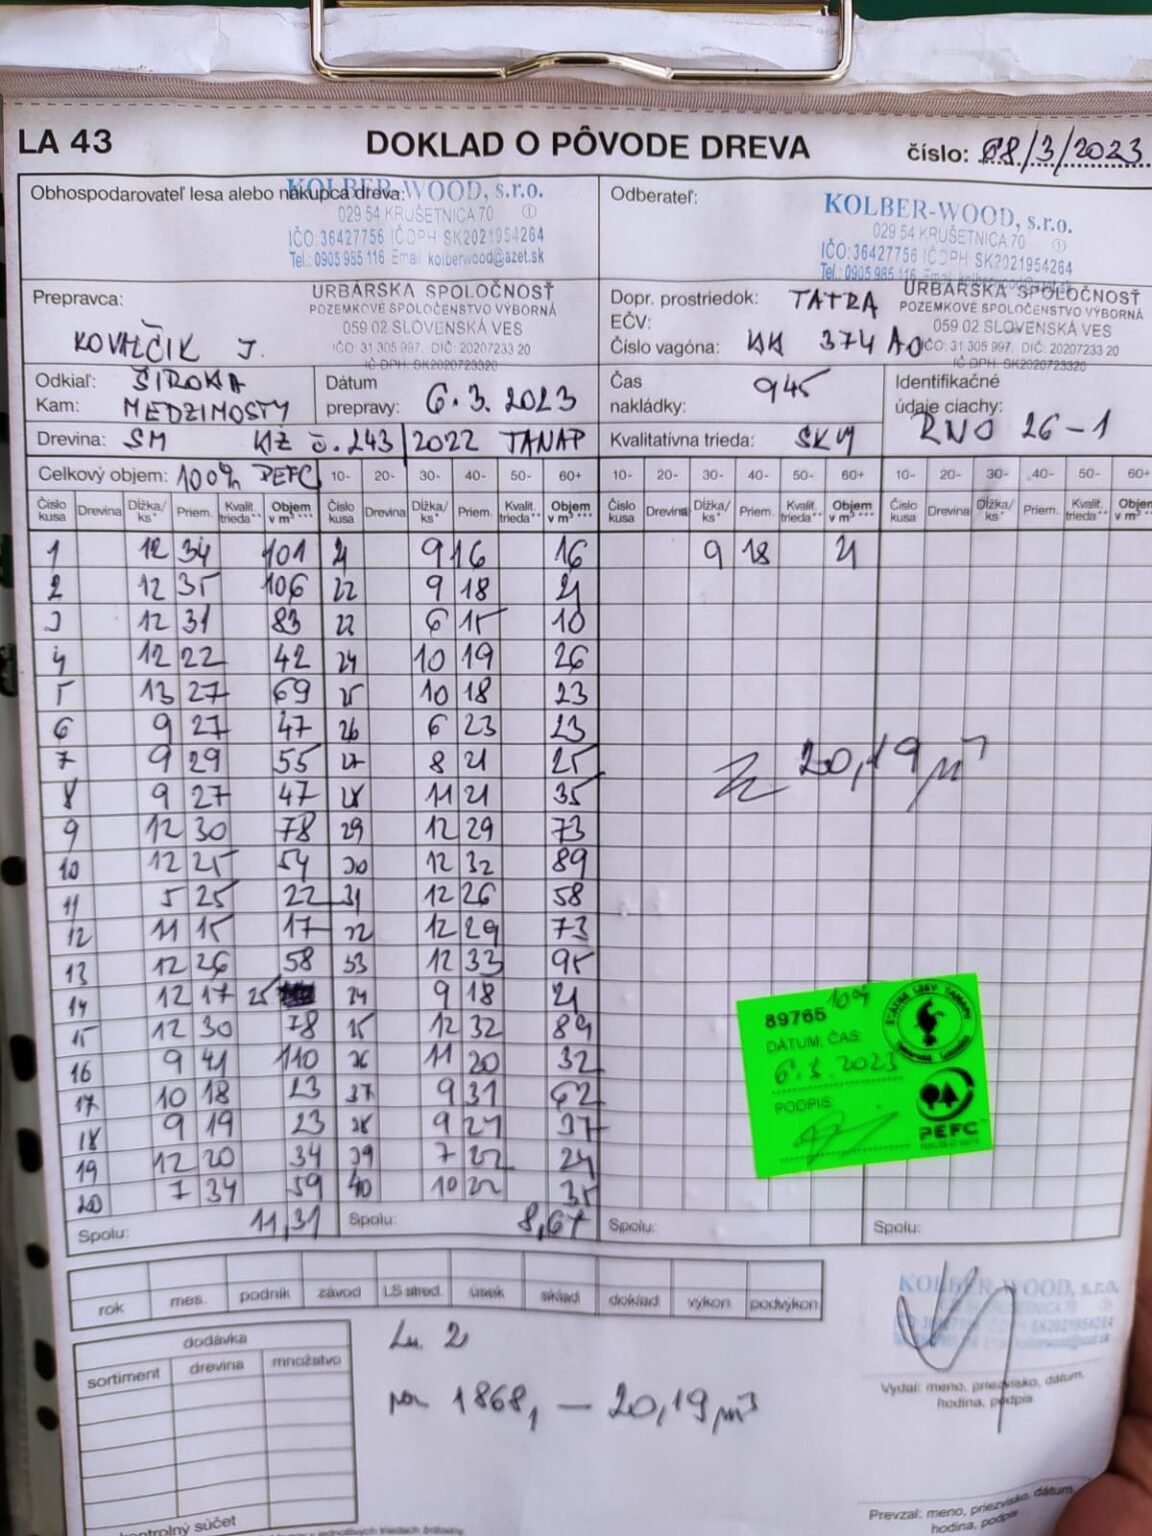 LA 43 DOKLAD O PÔVODE DREVA číslo: 68/3/2023
Obhospodarovateľ lesa alebo nákupca dreva:
KOLBER-WOOD, s.r.o.
029 54 KRUŠETNICA 70 ①
IČO:36427756 IČDPH SK2021954264
Tel.: 0905 985 116 Email kolberwood@azet.sk
Odberateľ:
KOLBER-WOOD, s.r.o.
029 54 KRUŠETNICA 70 ①
IČO:36427756 IČDPH SK2021954264
Tel.: 0905 985 116 Email kolberwood@azet.sk
Prepravca: KOVALČIK J.
URBÁRSKA SPOLOČNOSŤ
POZEMKOVÉ SPOLOČENSTVO VÝBORNÁ
059 02 SLOVENSKÁ VES
IČO: 31 305 997, DIČ: 20207233 20
IČ DPH: SK2020723320
Dopr. prostriedok: TATRA
EČV:
Číslo vagóna: KK 374 AO
URBÁRSKA SPOLOČNOSŤ
POZEMKOVÉ SPOLOČENSTVO VÝBORNÁ
059 02 SLOVENSKÁ VES
IČO: 31 305 997, DIČ: 20207233 20
IČ DPH: SK2020723320
Odkiaľ: ŠIROKA
Kam: MEDZIMOSTY
Dátum prepravy: 6.3.2023
Čas nakládky: 945
Identifikačné údaje ciachy: RNO 26-1
Drevina: SM KŽ č. 243/2022 TANAP Kvalitatívna trieda: SKVJ
Celkový objem: 100% PEFC 10- 20- 30- 40- 50- 60+ 10- 20- 30- 40- 50- 60+ 10- 20- 30- 40- 50- 60+
Číslo kusa Drevina Dĺžka/ks* Priem. Kvalit. trieda** Objem v m³*** Číslo kusa Drevina Dĺžka/ks* Priem. Kvalit. trieda** Objem v m³*** Číslo kusa Drevina Dĺžka/ks* Priem. Kvalit. trieda** Objem v m³*** Číslo kusa Drevina Dĺžka/ks* Priem. Kvalit. trieda** Objem
1 12 34 101 21 9 16 16 9 18 21
2 12 35 106 22 9 18 21
3 12 31 83 22 6 15 10
4 12 22 42 24 10 19 26
5 13 27 69 25 10 18 23
6 9 27 47 26 6 23 23
7 9 29 55 27 8 21 25
8 9 27 47 28 11 21 35
9 12 30 78 29 12 29 73
10 12 25 54 30 12 32 89
11 5 25 22 31 12 26 58
12 11 15 17 32 12 29 73
13 12 26 58 33 12 33 95
14 12 17 25 34 9 18 21
15 12 30 78 35 12 32 89
16 9 41 110 36 11 20 32
17 10 18 23 37 9 31 62
18 9 19 23 38 9 27 37
19 12 20 34 39 7 22 24
20 7 34 59 40 10 22 35
20,19 m³
89765 100%
DÁTUM, ČAS:
6.3.2023
PODPIS:
ŠTÁTNE LESY TANAPU
PEFC
Spolu: 11,31 Spolu: 8,67 Spolu: Spolu:
rok mes. podnik závod LS stred. úsek sklad doklad výkon podvýkon
dodávka
sortiment drevina množstvo
kontrolný súčet
20,19 m³
KOLBER-WOOD, s.r.o.
Vydal: meno, priezvisko, dátum,
hodina, podpis
Prevzal: meno, priezvisko, dátum,
hodina, podpis